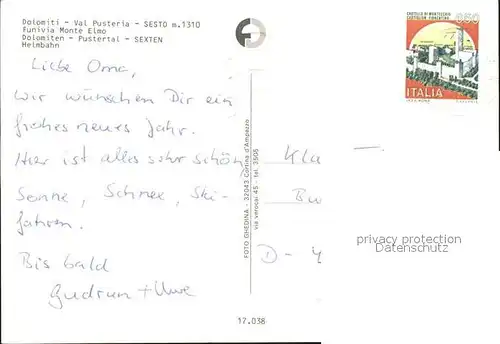 Dolomiti - Val Pusteria - SESTO m.1310
Funivia Monte Elmo
Dolomiten - Pustertal - SEXTEN
Helmbahn
Liebe Oma,
wir wünschen Dir ein
frohes neues Jahr.
Hier ist alles sehr schön,
Sonne, Schnee, Ski-
fahren.
Bis bald
Gudrun + Uwe
FOTO GHEDINA - 32043 Cortina d'Ampezzo
via verocai 45 - tel. 3505
17.038
CASTELLO DI MONTECCHIO
CASTIGLION FIORENTINO
650
ITALIA
Kla
Bu
D-
privacy protection
Datenschutz